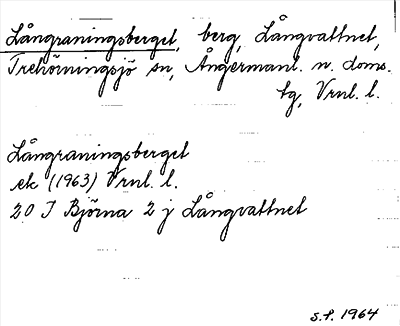 Långraningsberget, berg, Långvattnet,
Trehörningsjö sn, Ångermanl. n. doms.
tg, Vrnl. l.
Långraningsberget
ek (1963) Vrnl. l.
20 I Björna 2 j Långvattnet
S.F. 1964